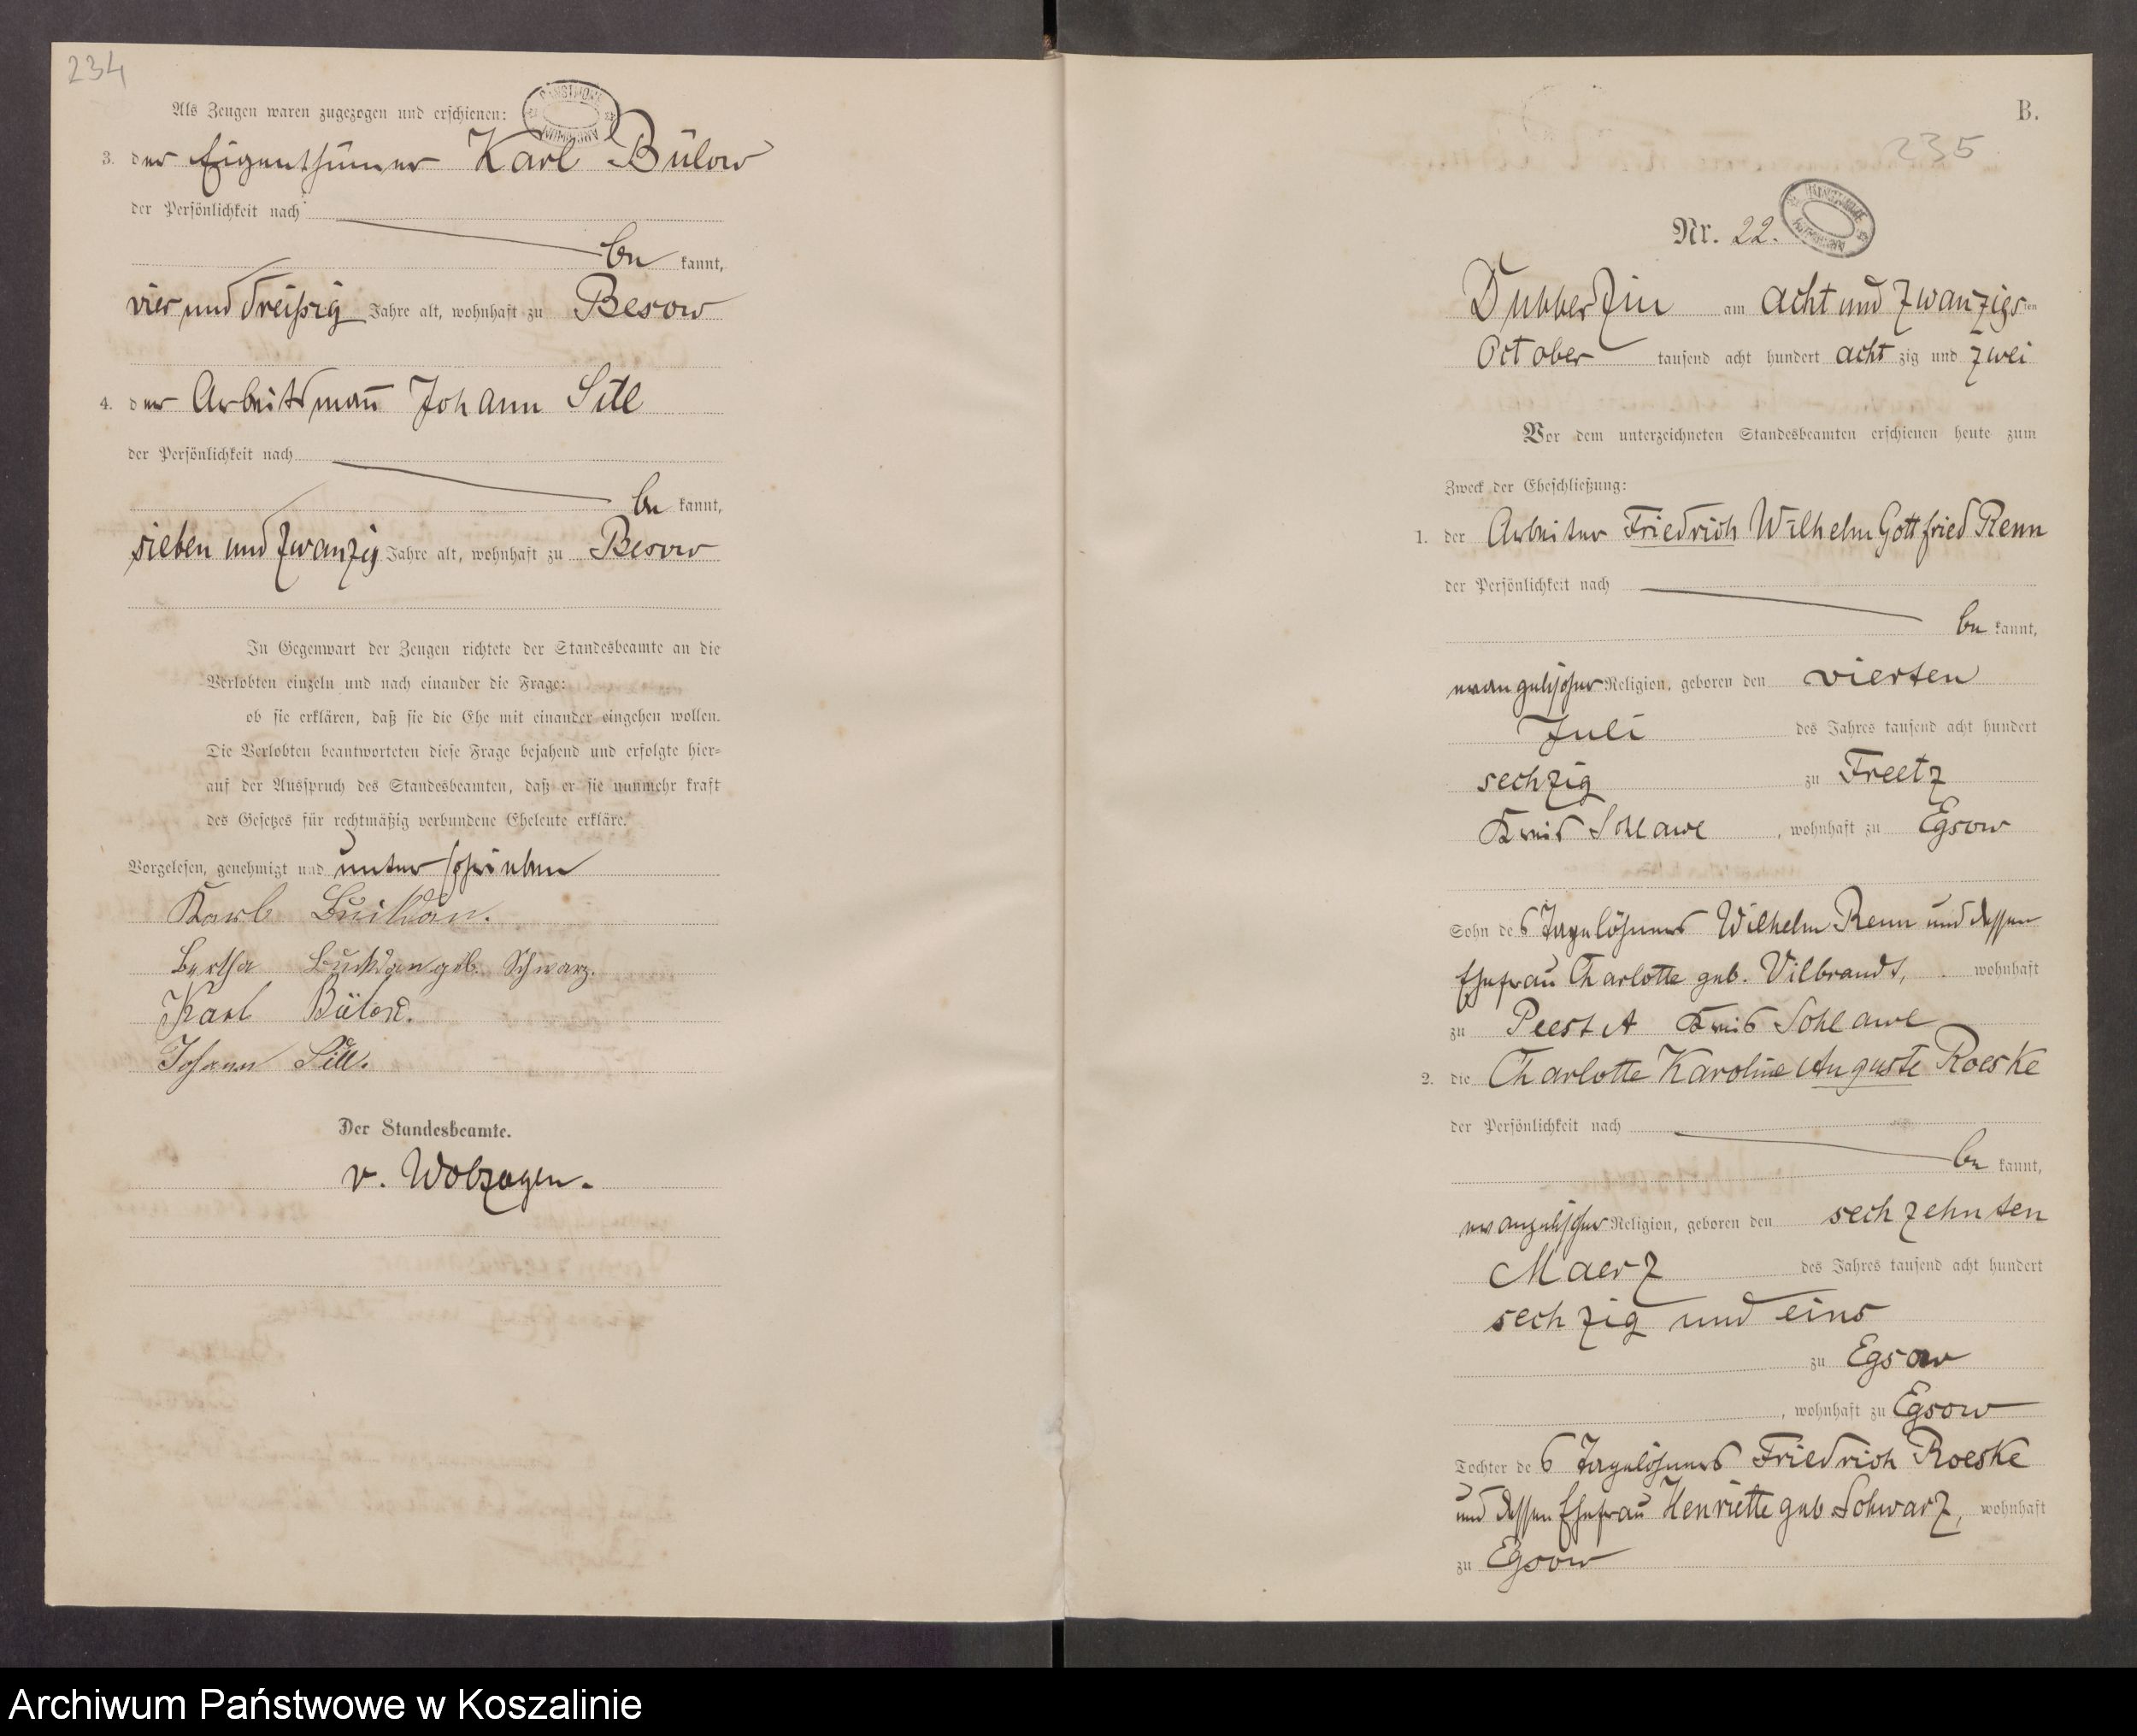 234
Als Zeugen waren zugezogen und erschienen:
3. der Eigenthümer Karl Bülow
der Persönlichkeit nach
be kannt,
vier und dreißig Jahre alt, wohnhaft zu Besow
4. der Arbeitsmann̅ Johann Sill
der Persönlichkeit nach
be kannt,
sieben und zwanzig Jahre alt, wohnhaft zu Besow
In Gegenwart der Zeugen richtete der Standesbeamte an die
Verlobten einzeln und nach einander die Frage:
ob sie erklären, daß sie die Ehe mit einander eingehen wollen.
Die Verlobten beantworteten diese Frage bejahend und erfolgte hier-
auf der Ausspruch des Standesbeamten, daß er sie nunmehr kraft
des Gesetzes für rechtmäßig verbundene Eheleute erkläre.
Vorgelesen, genehmigt und unterschrieben
Karl
Bertha geb. Schwarz.
Karl Bülow.
Johann Sill.
Der Standesbeamte.
v. Wolzogen.
B.
235
Nr. 22.
Dubberzin am acht und zwanzigs ten
October tausend acht hundert acht zig und zwei
Vor dem unterzeichneten Standesbeamten erschienen heute zum
Zweck der Eheschließung:
1. der Arbeiter Friedrich Wilhelm Gottfried Renn
der Persönlichkeit nach
be kannt,
evangelischer Religion, geboren den vierten
Juli des Jahres tausend acht hundert
sechzig zu Freetz
Kreis Schlawe, wohnhaft zu Egsow
Sohn des Tagelöhners Wilhelm Renn und dessen
Ehefrau Charlotte geb. Vilbrandt, wohnhaft
zu Peest A Kreis Schlawe
2. die Charlotte Karoline Auguste Roeske
der Persönlichkeit nach
be kannt,
evangelischer Religion, geboren den sechzehnten
Maerz des Jahres tausend acht hundert
sechzig und eins
zu Egsow
, wohnhaft zu Egsow
Tochter des Tagelöhners Friedrich Roeske
und dessen Ehefrau Henriette geb Schwarz, wohnhaft
zu Egsow
Archiwum Państwowe w Koszalinie